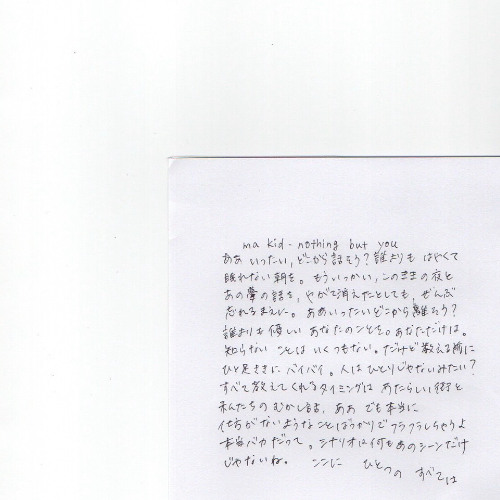 ma kid - nothing but you
ああ いったい、どこから話そう？誰よりも はやくて
眠れない朝を。もういっかい、このままの夜と
あの夢の話を、やがて消えたとしても、ぜんぶ
忘れるまえに。ああいったいどこから離そう？
誰よりも優しい あなたのことを。あなただけは。
知らない ことは いくつもない。だけど教える前に
ひと足さきに バイバイ。人は ひとりじゃないみたい？
すべて教えてくれるタイミングは あたらしい街と
私たちの むかし話、ああ でも本当に
仕方がないような ことばっかりで フラフラしちゃうよ
本当バカだって。シナリオは何も あのシーンだけ
じゃないね。 ここに ひとつの すべては